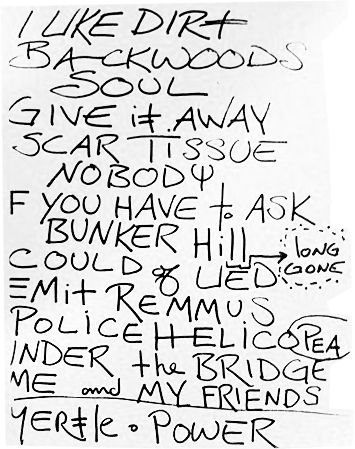 I LIKE DIRt
BACKWOODS
SOUL
GIVE it AWAY
SCAR TISSUE
NOBODY
F YOU HAVE to ASK
BUNKER Hill
LONG
GONE
COULD of LIED
EMit REMMUS
POLICE HELICO PEA
INDER the BRIDGE
ME and MY FRIENDS
YERtle • POWER